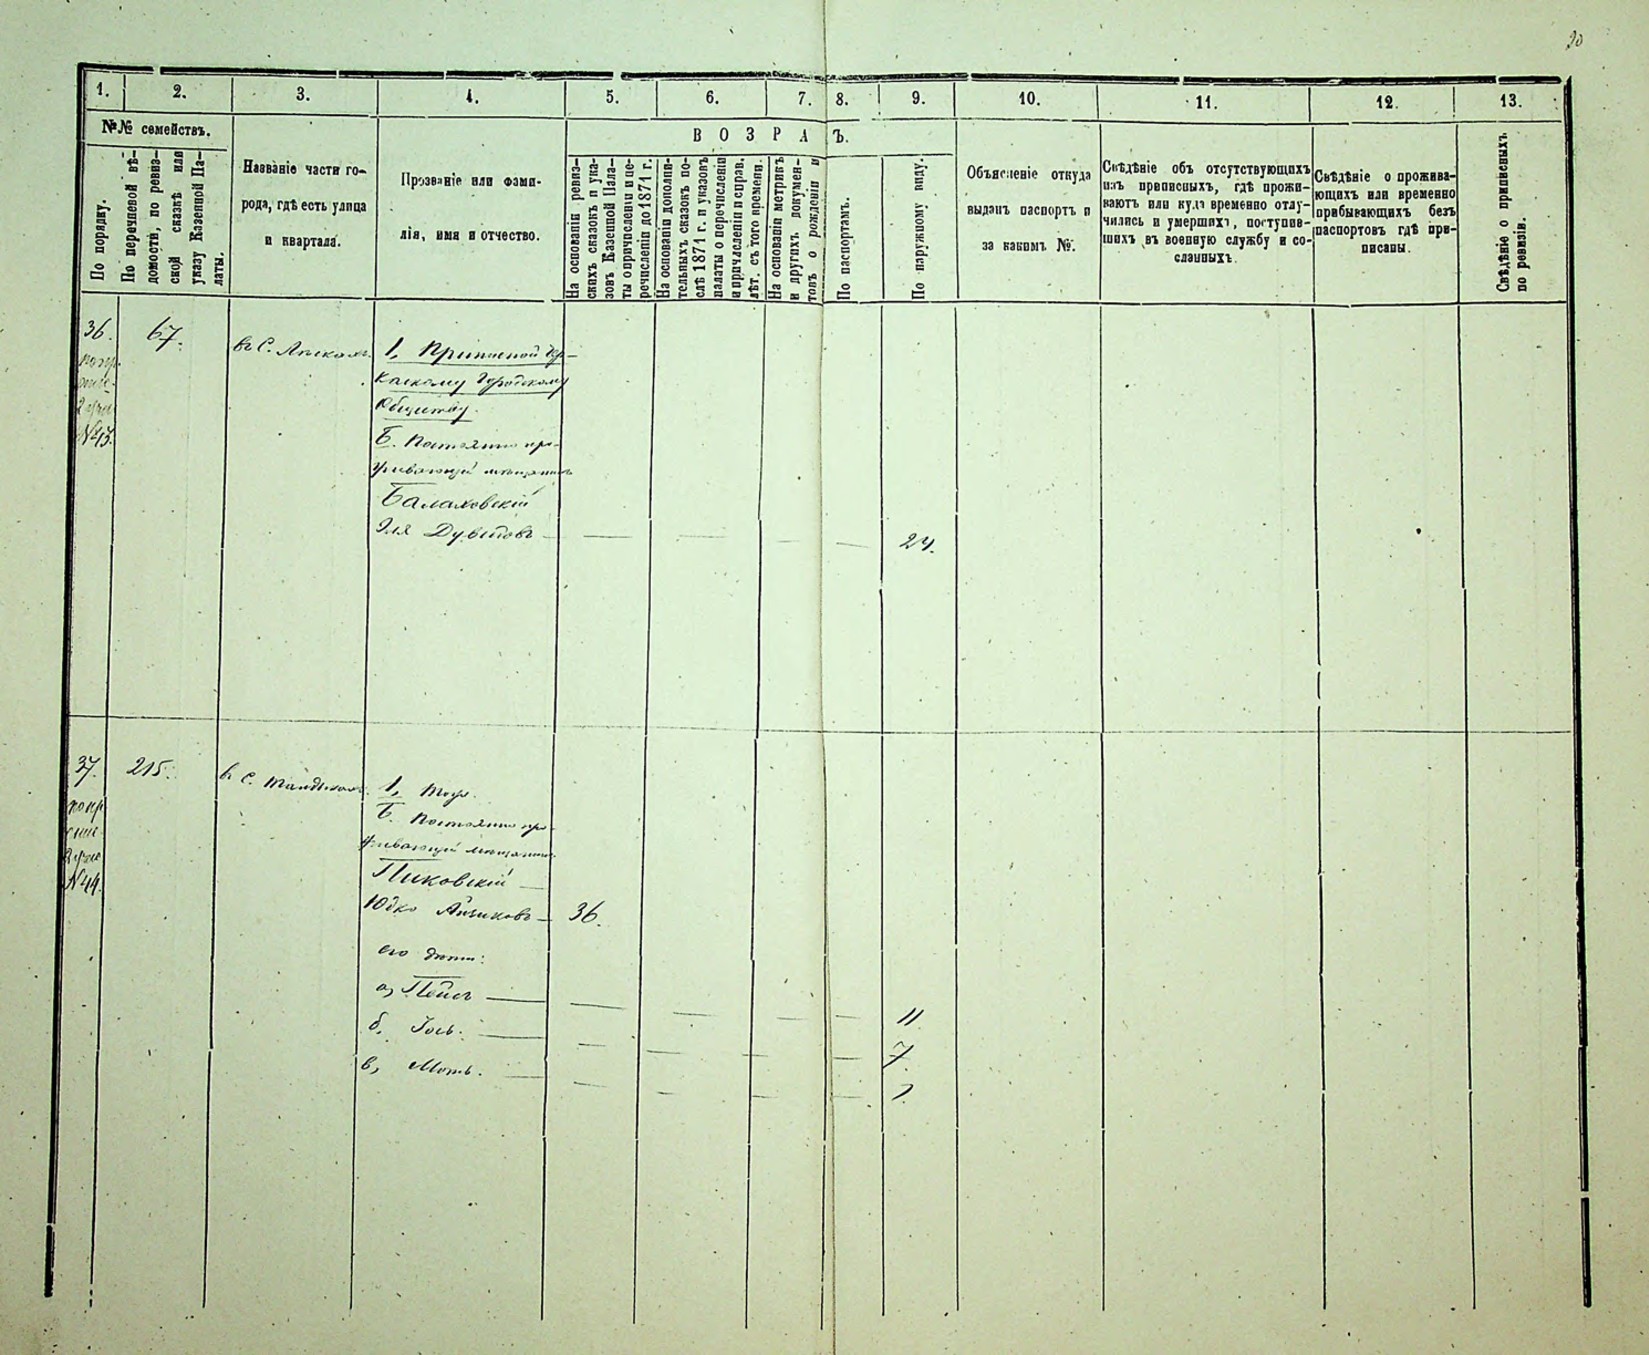 20
1. 2. 3. 4. 5. 6. 7. 8. 9. 10. 11. 12. 13.
№№ семействъ.
По порядку.
По перечневой вѣ-
домости, по ревиз-
ской сказкѣ или
указу Казенной Па-
латы.
Названіе части го-
рода, гдѣ есть улица
и квартала.
Прозваніе или фами-
лія, имя и отчество.
ВОЗРА Ъ.
На основаніи ревиз-
скихъ сказокъ и ука-
зовъ Казенной Пала-
ты о причисленіи и пе-
речисленіи до 1871 г.
На основаніи дополни-
тельныхъ сказокъ по-
слѣ 1871 г. и указовъ
палаты о перечисленіи
и причисленіи и справ.
лѣт. съ того времени.
На основаніи метрикъ
и другихъ докумен-
товъ о рожденіи и
По паспортамъ.
По наружному виду.
Объясненіе откуда
выданъ паспортъ и
за какимъ №.
Свѣдѣніе объ отсутствующихъ
изъ приписныхъ, гдѣ прожи-
ваютъ или куда временно отлу-
чились и умершихъ, поступив-
шихъ въ военную службу и со-
сланныхъ.
Свѣдѣніе о прожива-
ющихъ или временно
прибывающихъ безъ
паспортовъ гдѣ при-
писаны.
Свѣдѣніе о приписныхъ
по ревизіи.
36. 67.
въ С.
№43.
1, Приписной
Городскому
Обществу.
Б. Постоянно про-
живающій мѣщанинъ
Балаховскій
Эля Дувидовъ 24.
37. 215.
въ С.
№44.
1,
Б. Постоянно про-
живающій мѣщанинъ
Пиковскій
Юдко Айзиковъ 36.
его дѣти:
а, Пейсъ 11
б, Іось. 7.
в, Моть. 1